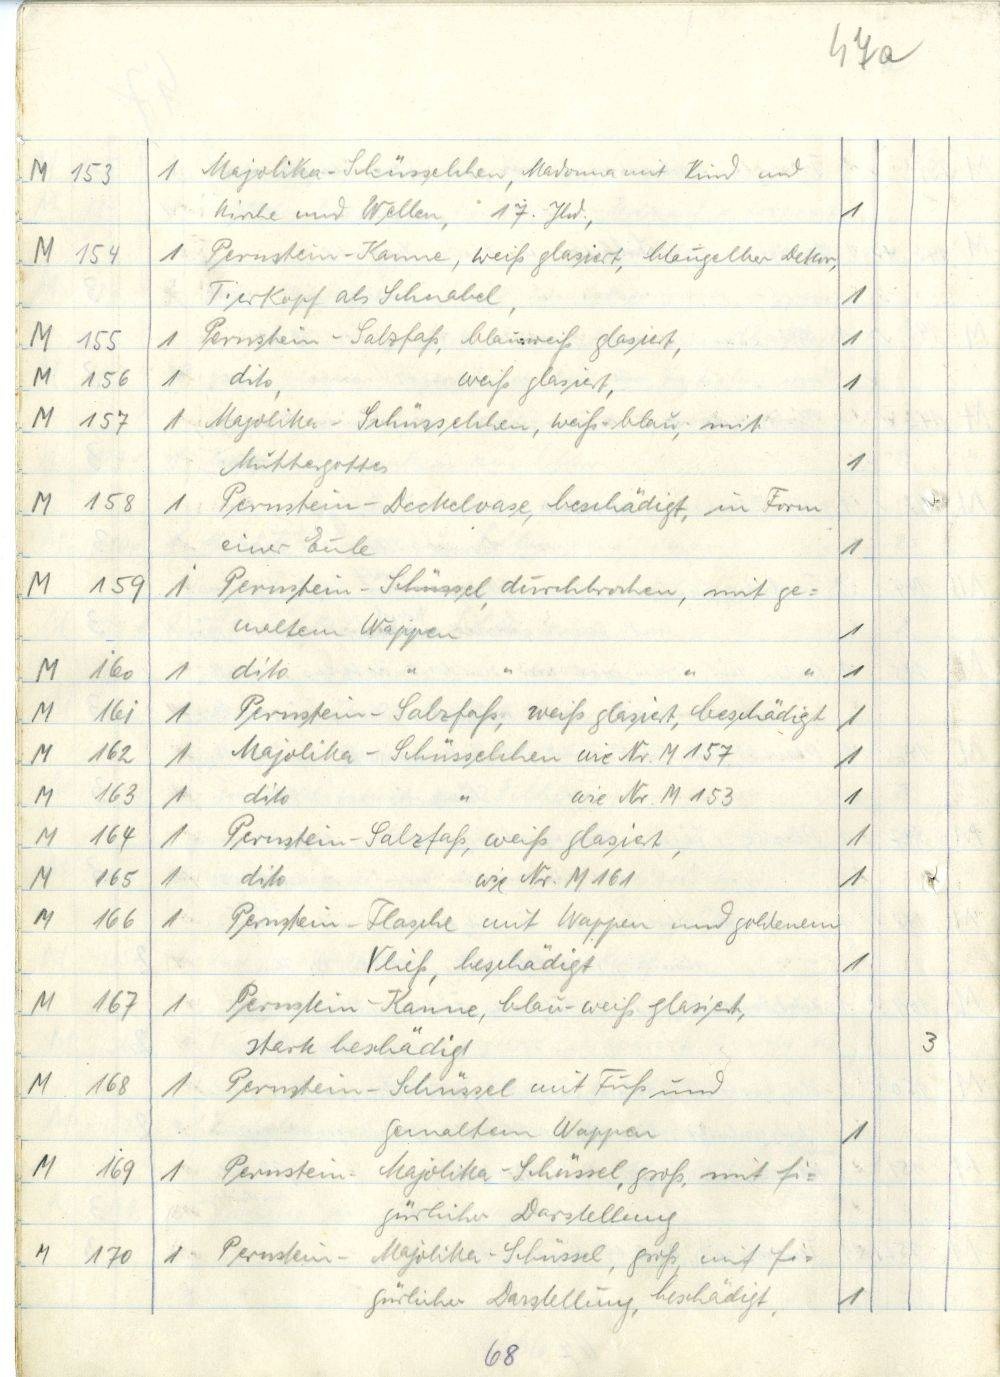 47a
M 153 1 Majolika-Schüsselchen, Madonna mit Kind und
Kirche und Wellen, 17. Jhd., 1
M 154 1 Pernstein-Kanne, weiß glasiert, blaugelber Dekor,
Tierkopf als Schnabel, 1
M 155 1 Pernstein-Salzfaß, blauweiß glasiert, 1
M 156 1 dito, weiß glasiert, 1
M 157 1 Majolika-Schüsselchen, weiß-blau, mit
Muttergottes 1
M 158 1 Pernstein-Deckelvase, beschädigt, in Form
einer Eule 1
M 159 1 Pernstein-Schüssel, durchbrochen, mit ge=
maltem Wappen 1
M 160 1 dito " " " " 1
M 161 1 Pernstein-Salzfaß, weiß glasiert, beschädigt 1
M 162 1 Majolika-Schüsselchen wie Nr. M 157 1
M 163 1 dito " wie Nr. M 153 1
M 164 1 Pernstein-Salzfaß, weiß glasiert, 1
M 165 1 dito wie Nr. M 161 1
M 166 1 Pernstein-Flasche mit Wappen und goldenem
Vließ, beschädigt 1
M 167 1 Pernstein-Kanne, blau-weiß glasiert,
stark beschädigt 3
M 168 1 Pernstein-Schüssel mit Fuß und
gemaltem Wappen 1
M 169 1 Pernstein-Majolika-Schüssel, groß, mit fi=
gürlicher Darstellung
M 170 1 Pernstein-Majolika-Schüssel, groß, mit fi=
gürlicher Darstellung, beschädigt, 1
68